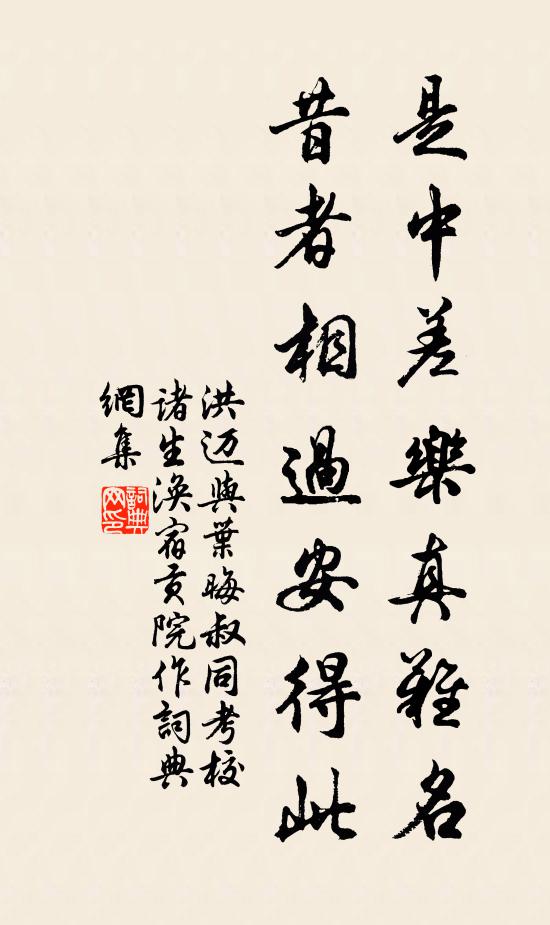 是中差樂真難名
昔者相過安得此
洪迈與葉晦叔同考校
诸生涣宿貢院作詞典
網集
詞典
网印